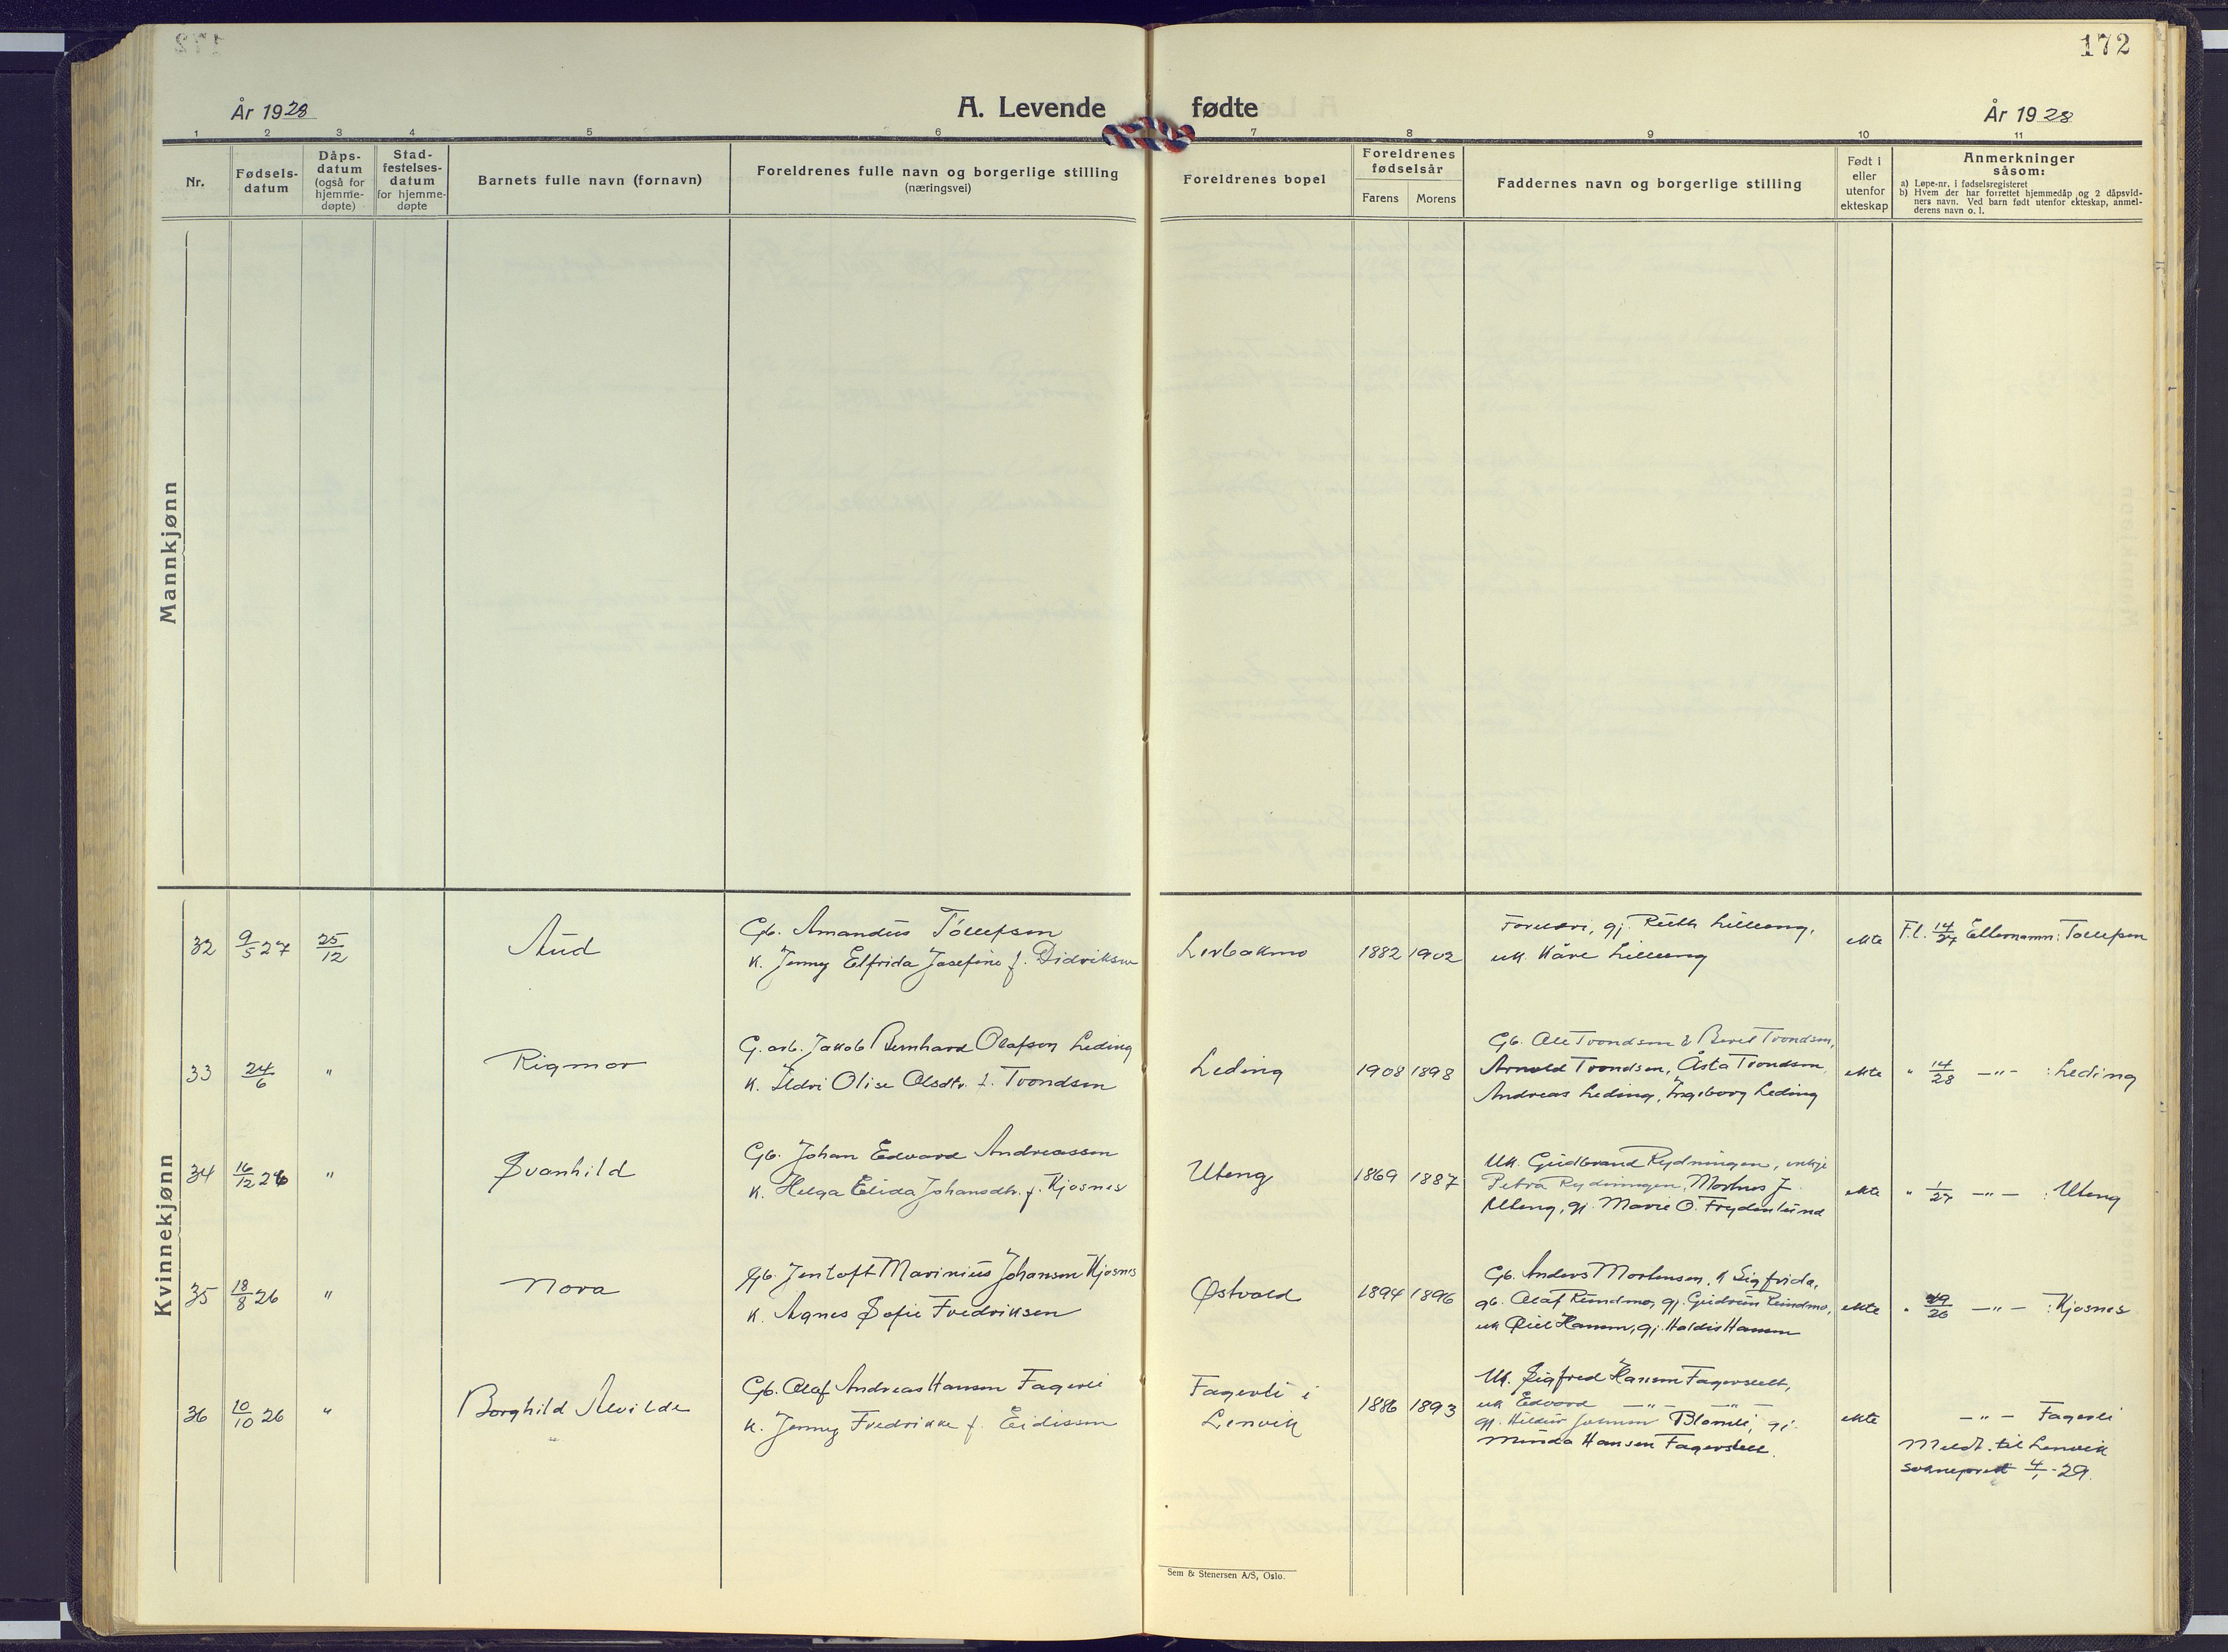 172
År 1928
A. Levende fødte
År 1928
1 2 3 4 5 6 7 8 9 10 11
Nr.
Fødsels-
datum
Dåps-
datum
(også for
hjemme-
døpte)
Stad-
festelses-
datum
for hjemme-
døpte
Barnets fulle navn (fornavn)
Foreldrenes fulle navn og borgerlige stilling
(næringsvei)
Foreldrenes bopel
Foreldrenes
fødselsår
Farens Morens
Faddernes navn og borgerlige stilling
Født i
eller
utenfor
ekteskap
Anmerkninger
såsom:
a) Løpe-nr. i fødselsregisteret
b) Hvem der har forrettet hjemmedåp og 2 dåpsvid-
ners navn. Ved barn født utenfor ekteskap, anmel-
derens navn o. l.
Mannkjønn
Kvinnekjønn
32 9/5 27 25/12 Aud
Gb. Amandus Tollefsen
K. Jenny Elfrida Josefine f. Didriksen
1882 1902
gj. Ruth Lilleeng,
uk. Kåre Lilleeng
ekte
F.l. 14/27 Etternamn: Tollefsen
33 24/6 " Rigmor
G. arb. Jakob Bernhard Olafsen Leding
K. Ildri Olise Olsdtr. f. Trondsen
Leding
1908 1898
Gb. Ole Trondsen & Beret Trondsen,
Arnold Trondsen, Åsta Trondsen,
Andreas Leding, Ingeborg Leding
ekte
" 14/28 — " — : Leding
34 16/12 26 " Svanhild
Gb. Johan Edvard Andreassen
K. Helga Elida Johansdtr. f. Kjosnes
Uteng
1869 1887
Uk. Gudbrand Rydningen,
Petra Rydningen, J.
Uteng, gj. Marie O. Frydenlund
ekte
" 1/27 — " — : Uteng
35 18/8 26 " Nora
Gb. Jentoft Marinius Johansen Kjosnes
K. Agnes Sofie Fredriksen
Østvold
1894 1896
Gb. Anders Mortensen, K Sigfrida,
gb. Olaf Rundmo, gj. Gudrun Rundmo,
uk Hansen, gj. Haldis Hansen
ekte
" /26 — " — : Kjosnes
36 10/10 26 " Borghild Alvilde
Gb. Olaf Andreas Hansen Fagerli
K. Jenny Fredrikke f. Eidissen
Fagerli i
Lenvik
1886 1893
Uk. Sigfred Hansen Fagerslett,
uk Edvard — " — — " —
gj. Hildur Johnsen Blomli, gj.
Minda Hansen Fagerslett.
ekte
— " — Fagerli
Meldt til Lenvik
sokneprest 4/1-29.
Sem & Stenersen A/S, Oslo.